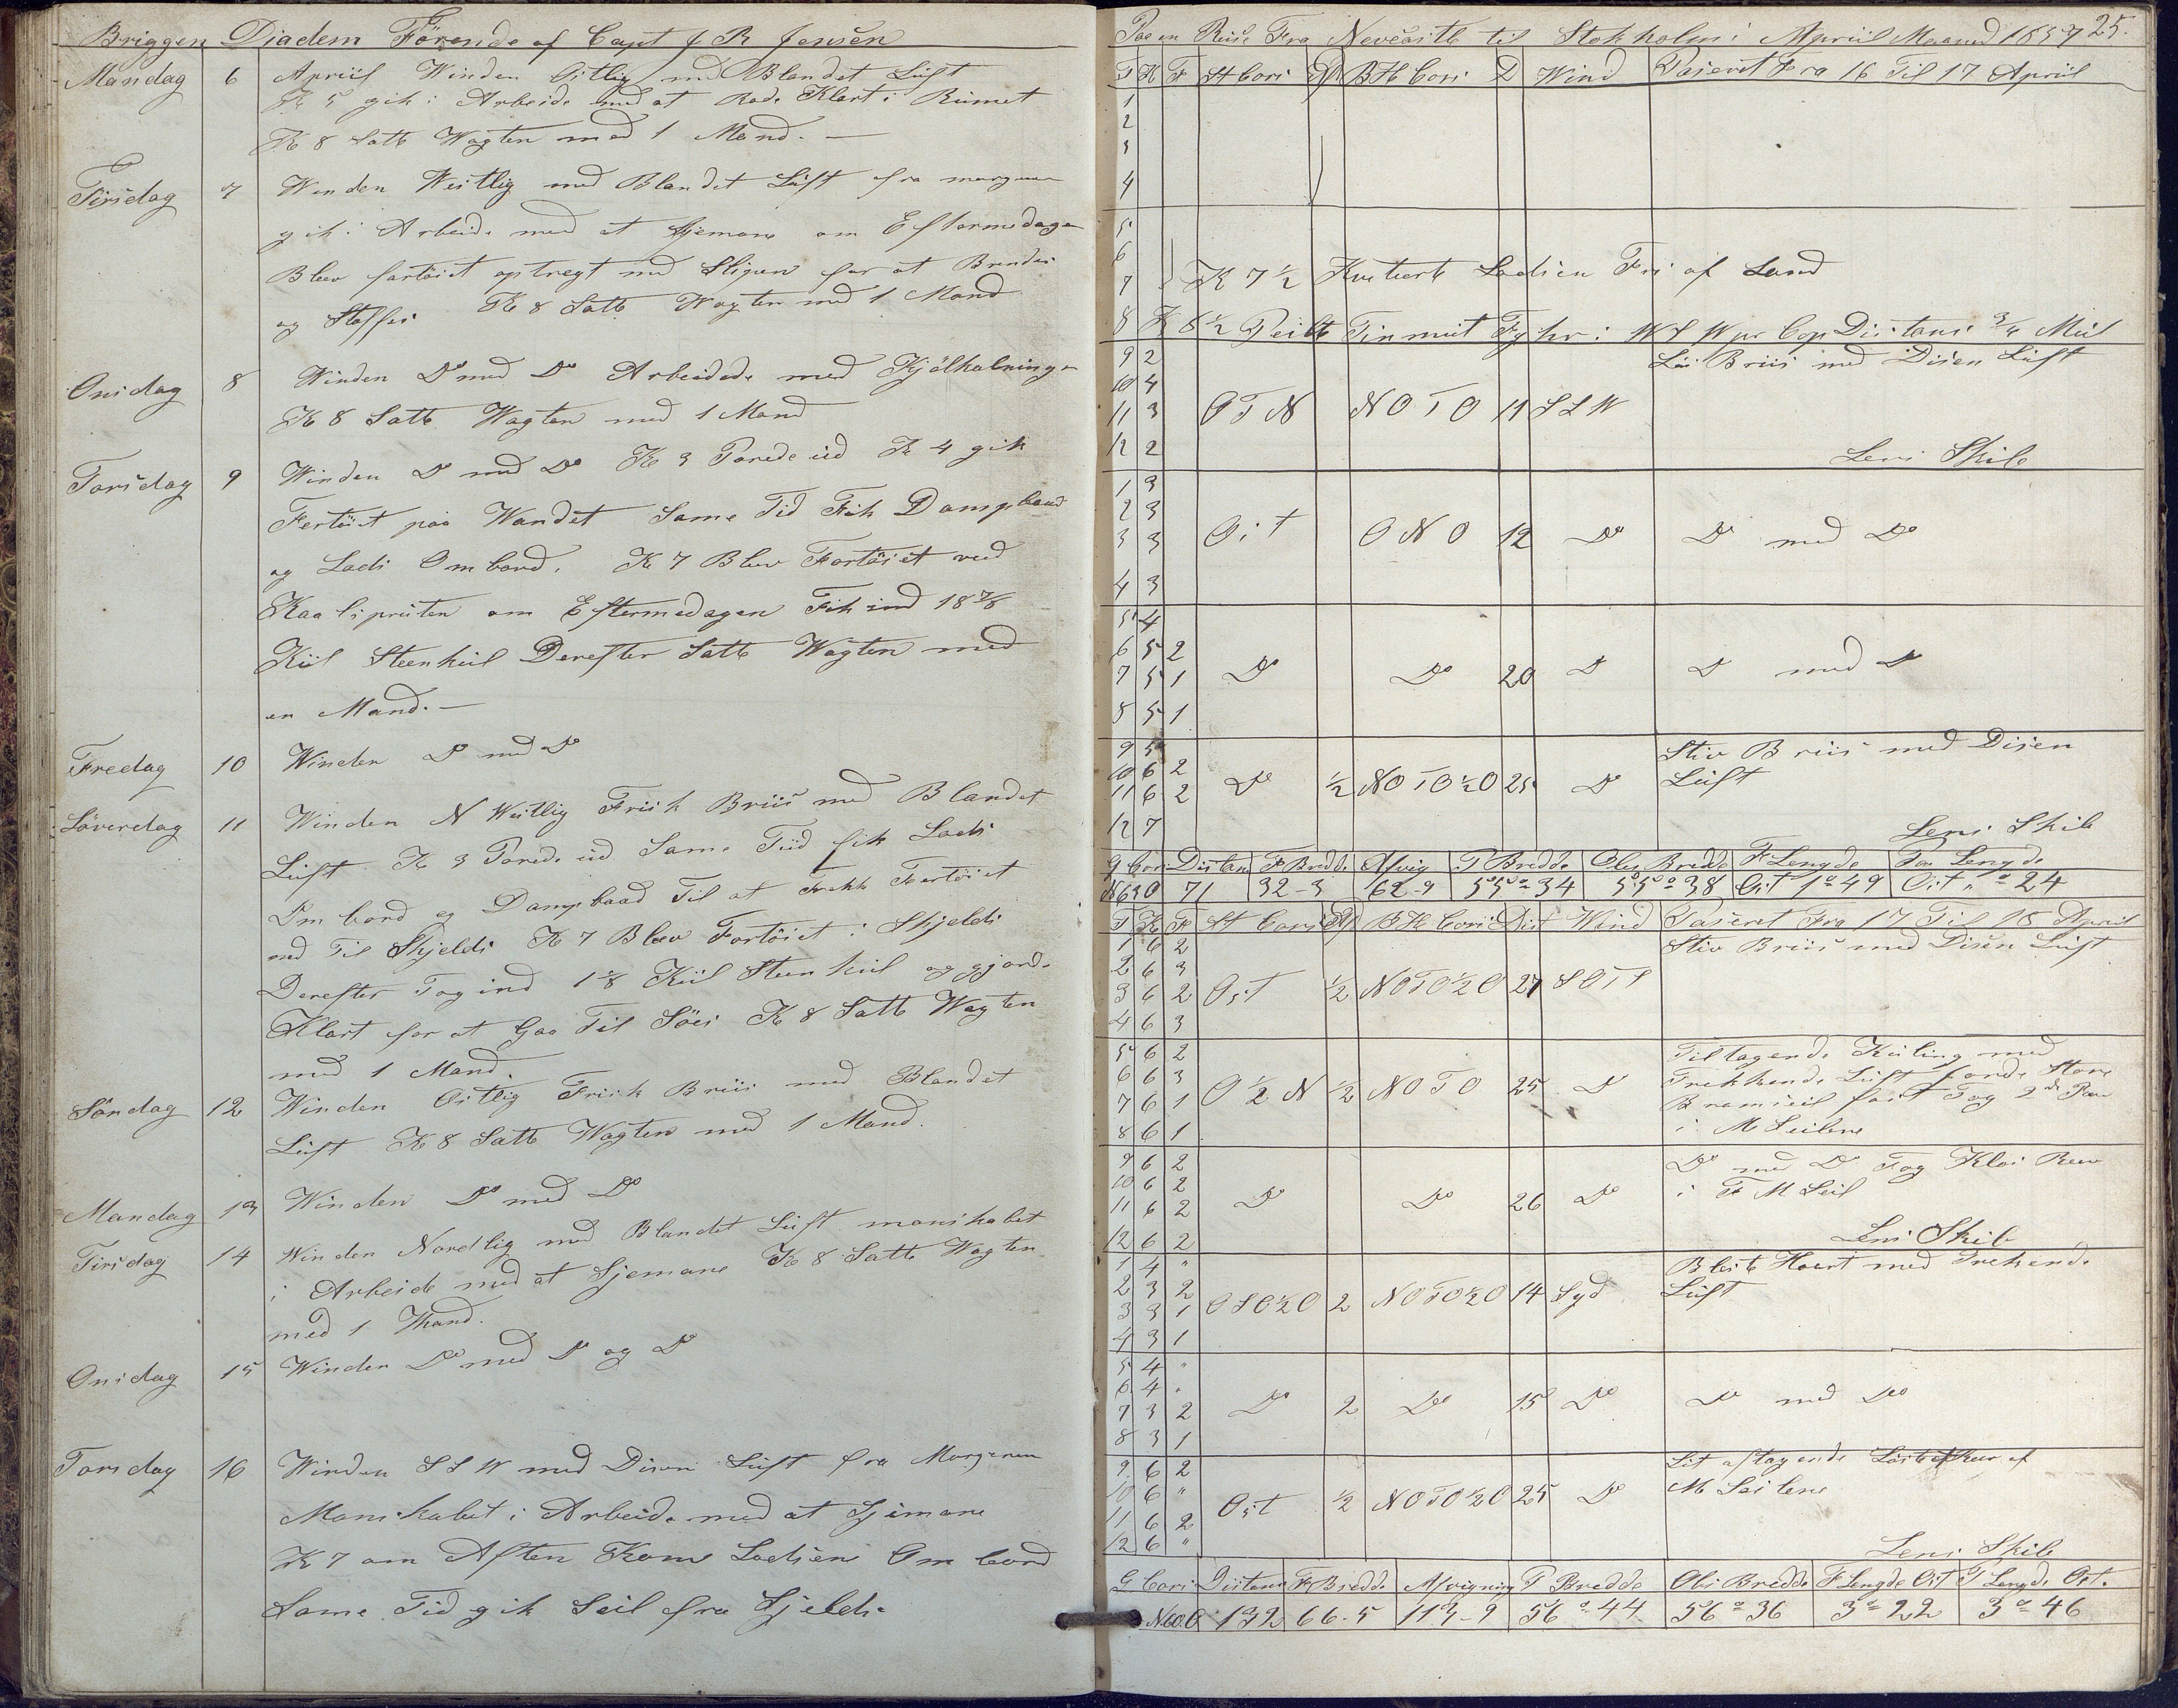 Briggen Diadem Förende af Capt J R Jensen
Mandag 6 Apriil Winden Ostlig med Blandet Lüft
Kl 5 gik i Arbeide med at Rade Klart i Rümet
Kl 8 Satte Wagten med 1 Mand. —
Tirsdag 7 Winden Westlig med Blandet Lüft fra morgenen
gik i Arbeide med at fjemane om Eftermedagen
Blev fartöiet optregt med Sligen for at Brendes
og Stoffes Kl 8 Satte Wagten med 1 Mand
Onsdag 8 Winden Do med Do Arbeidede med Kjölhalninge
Kl 8 Satte Wagten med 1 Mand
Torsdag 9 Winden Do med Do Kl 3 Porede üd Kl 4 gik
Fertöiet paa Wandet Same Tid Fik Dampbaad
og Lods Ombord. Kl 7 Blev Fortöiet ved
Kaalsprüten om Eftermedagen Fik ind 18 7/8
Kiil Steenkül Derefter Satte Wagten med
en Mand. —
Fredag 10 Winden Do med Do
Löverdag 11 Winden N Westlig Frisk Briis med Blandet
Lüft Kl 3 Porede üd Same Tiid fik Lods
Om bord og Dampbaad Til at Trekk Fertöiet
ned Til Skjelds Kl 7 Blev Fortöiet i Skjelds
Derefter Tog ind 1 1/8 Kiil Steenkül og gjorde
Klart for at Gaa Til Söes Kl 8 Satte Wagten
med 1 Mand.
Söndag 12 Winden Ostlig Frisk Briis med Blandet
Lüft Kl 8 Satte Wagten med 1 Mand.
Mandag 13 Winden Do med Do
Tirsdag 14 Winden Nordlig med Blandet Lüft manskabet
i Arbeide med at Sjemane Kl 8 Satte Wagten
med 1 Mand.
Onsdag 15 Winden Do med Do og Do
Torsdag 16 Winden S S W med Disen Lüft fra Morgenen
Manskabet i Arbeide med at Sjemane
Kl 7 om Aften Kom Lodsen Om bord
Same Tid gik Seil fra Sjelds
Paa en Reise Fra Nevcastle til Stokholm i Apriil Maaned 1857 25.
T K F St Cors Af BH Cors D Wind Paseret Fra 16 Til 17 Apriil
1
2
3
4
5
6
7 Kl 7 1/2 Kviterte Lodsen Fri af Land
8 Kl 8 1/2 Peilte Tinmüt Fyhr i W S W pr Cop Distans 3/4 Miil
9 2 Lös Briis med Disen Lüft
10 4
11 3 O T N NO T O 11 S S W
12 2 Lens Skib
1 3
2 3
3 3 Ost O N O 12 Do Do med Do
4 3
5 4
6 5 2
7 5 1 Do Do 20 Do Do med Do
8 5 1
9 5 Stiv Briis med Disen
10 6 2 Do 1/2 NO TO 1/2 O 25 Do Lüft
11 6 2
12 7 Lens Skib
G Cors Distans F Bredde Afvig P Bredde Obs Bredde F Lengde Paa Lengde
N 63 O 71 32-3 62-9 55° 34 55° 38 Ost 1° 49 Ost " ° 24
T K F St Cors Af BH Cors Dist Wind Paseret Fra 17 Til 18 Apriil
1 6 2 Stiv Briis med Disen Lüft
2 6 3
3 6 2 Ost 1/2 NO TO 1/2 O 27 SOTS
4 6 3
5 6 2 Tiltagende Küling med
6 6 3 O 1/2 N 1/2 NO T O 25 Do Trekkende Lüft Store
7 6 1 Bramseil fast Tog 2de Rev
8 6 1 i M Seilene
9 6 2 Do med Do Tog Klos Rev
10 6 2 i F M Seil
11 6 2 Do Do 26 Do
12 6 2 Lens Skib
1 4 " Bleste Haart med Trekende
2 3 2 Lüft
3 3 1 OSO 1/2 O 2 NO TO 1/2 O 14 Syd
4 3 1
5 4 "
6 4 "
7 3 2 Do 2 Do 15 Do Do med Do
8 3 1
9 6 2 Lit aftagende af
10 6 " Ost 1/2 NO TO 1/2 O 25 Do M Seilene
11 6 2
12 6 " Lens Skib
G Cors Distans F Bredde Afvigning P Bredde Obs Bredde F Lengde Ost P Lengde Ost.
N 60 O 132 66-5 113-9 56° 44 56° 36 3° 22 3° 46